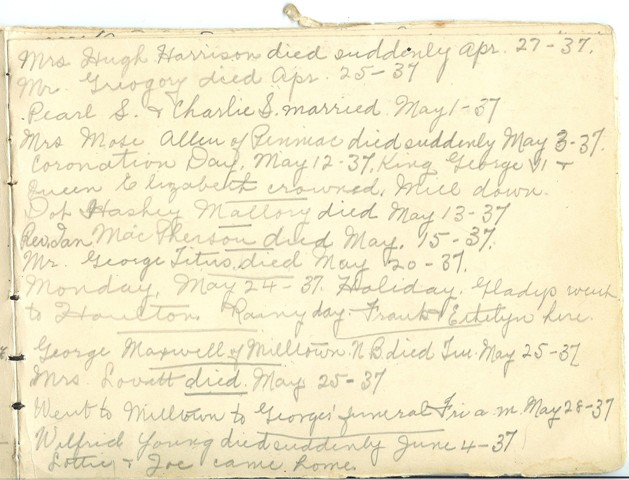 Mrs Hugh Harrison died suddenly Apr. 27-37.
Mr. Griogory died Apr. 25-37
Pearl S. & Charlie S. married May 1-37
Mrs Mose Allen of Penniac died suddenly May 3-37.
Coronation Day, May 12-37, King George VI &
Queen Elizabeth crowned. Mill down.
Dot Haskey Mallory died May 13-37
Rev. Ian MacPherson died May. 15-37.
Mr. George Titus, died May 20-37.
Monday, May 24-37. Holiday. Gladys went
to Houlton. Rainy day. Frank & here.
George Maxwell of Milltown. N B died Tue. May 25-37
Mrs. Lovatt died. May 25-37
Went to Milltown to Georges' funeral Fri a.m. May 28-37
Wilfred Young died suddenly June 4-37
Lottie & Joe came home.